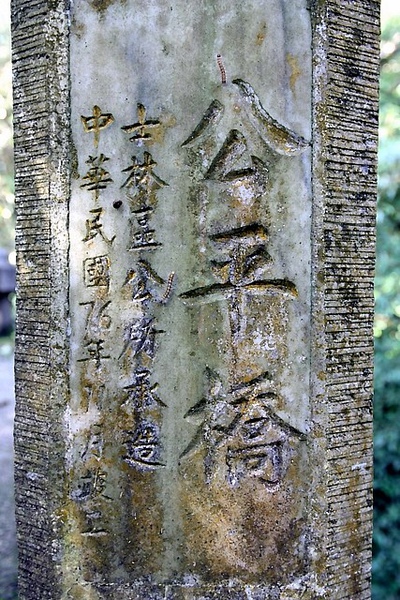 公平橋
士林區公所承造
中華民國76年11月竣工